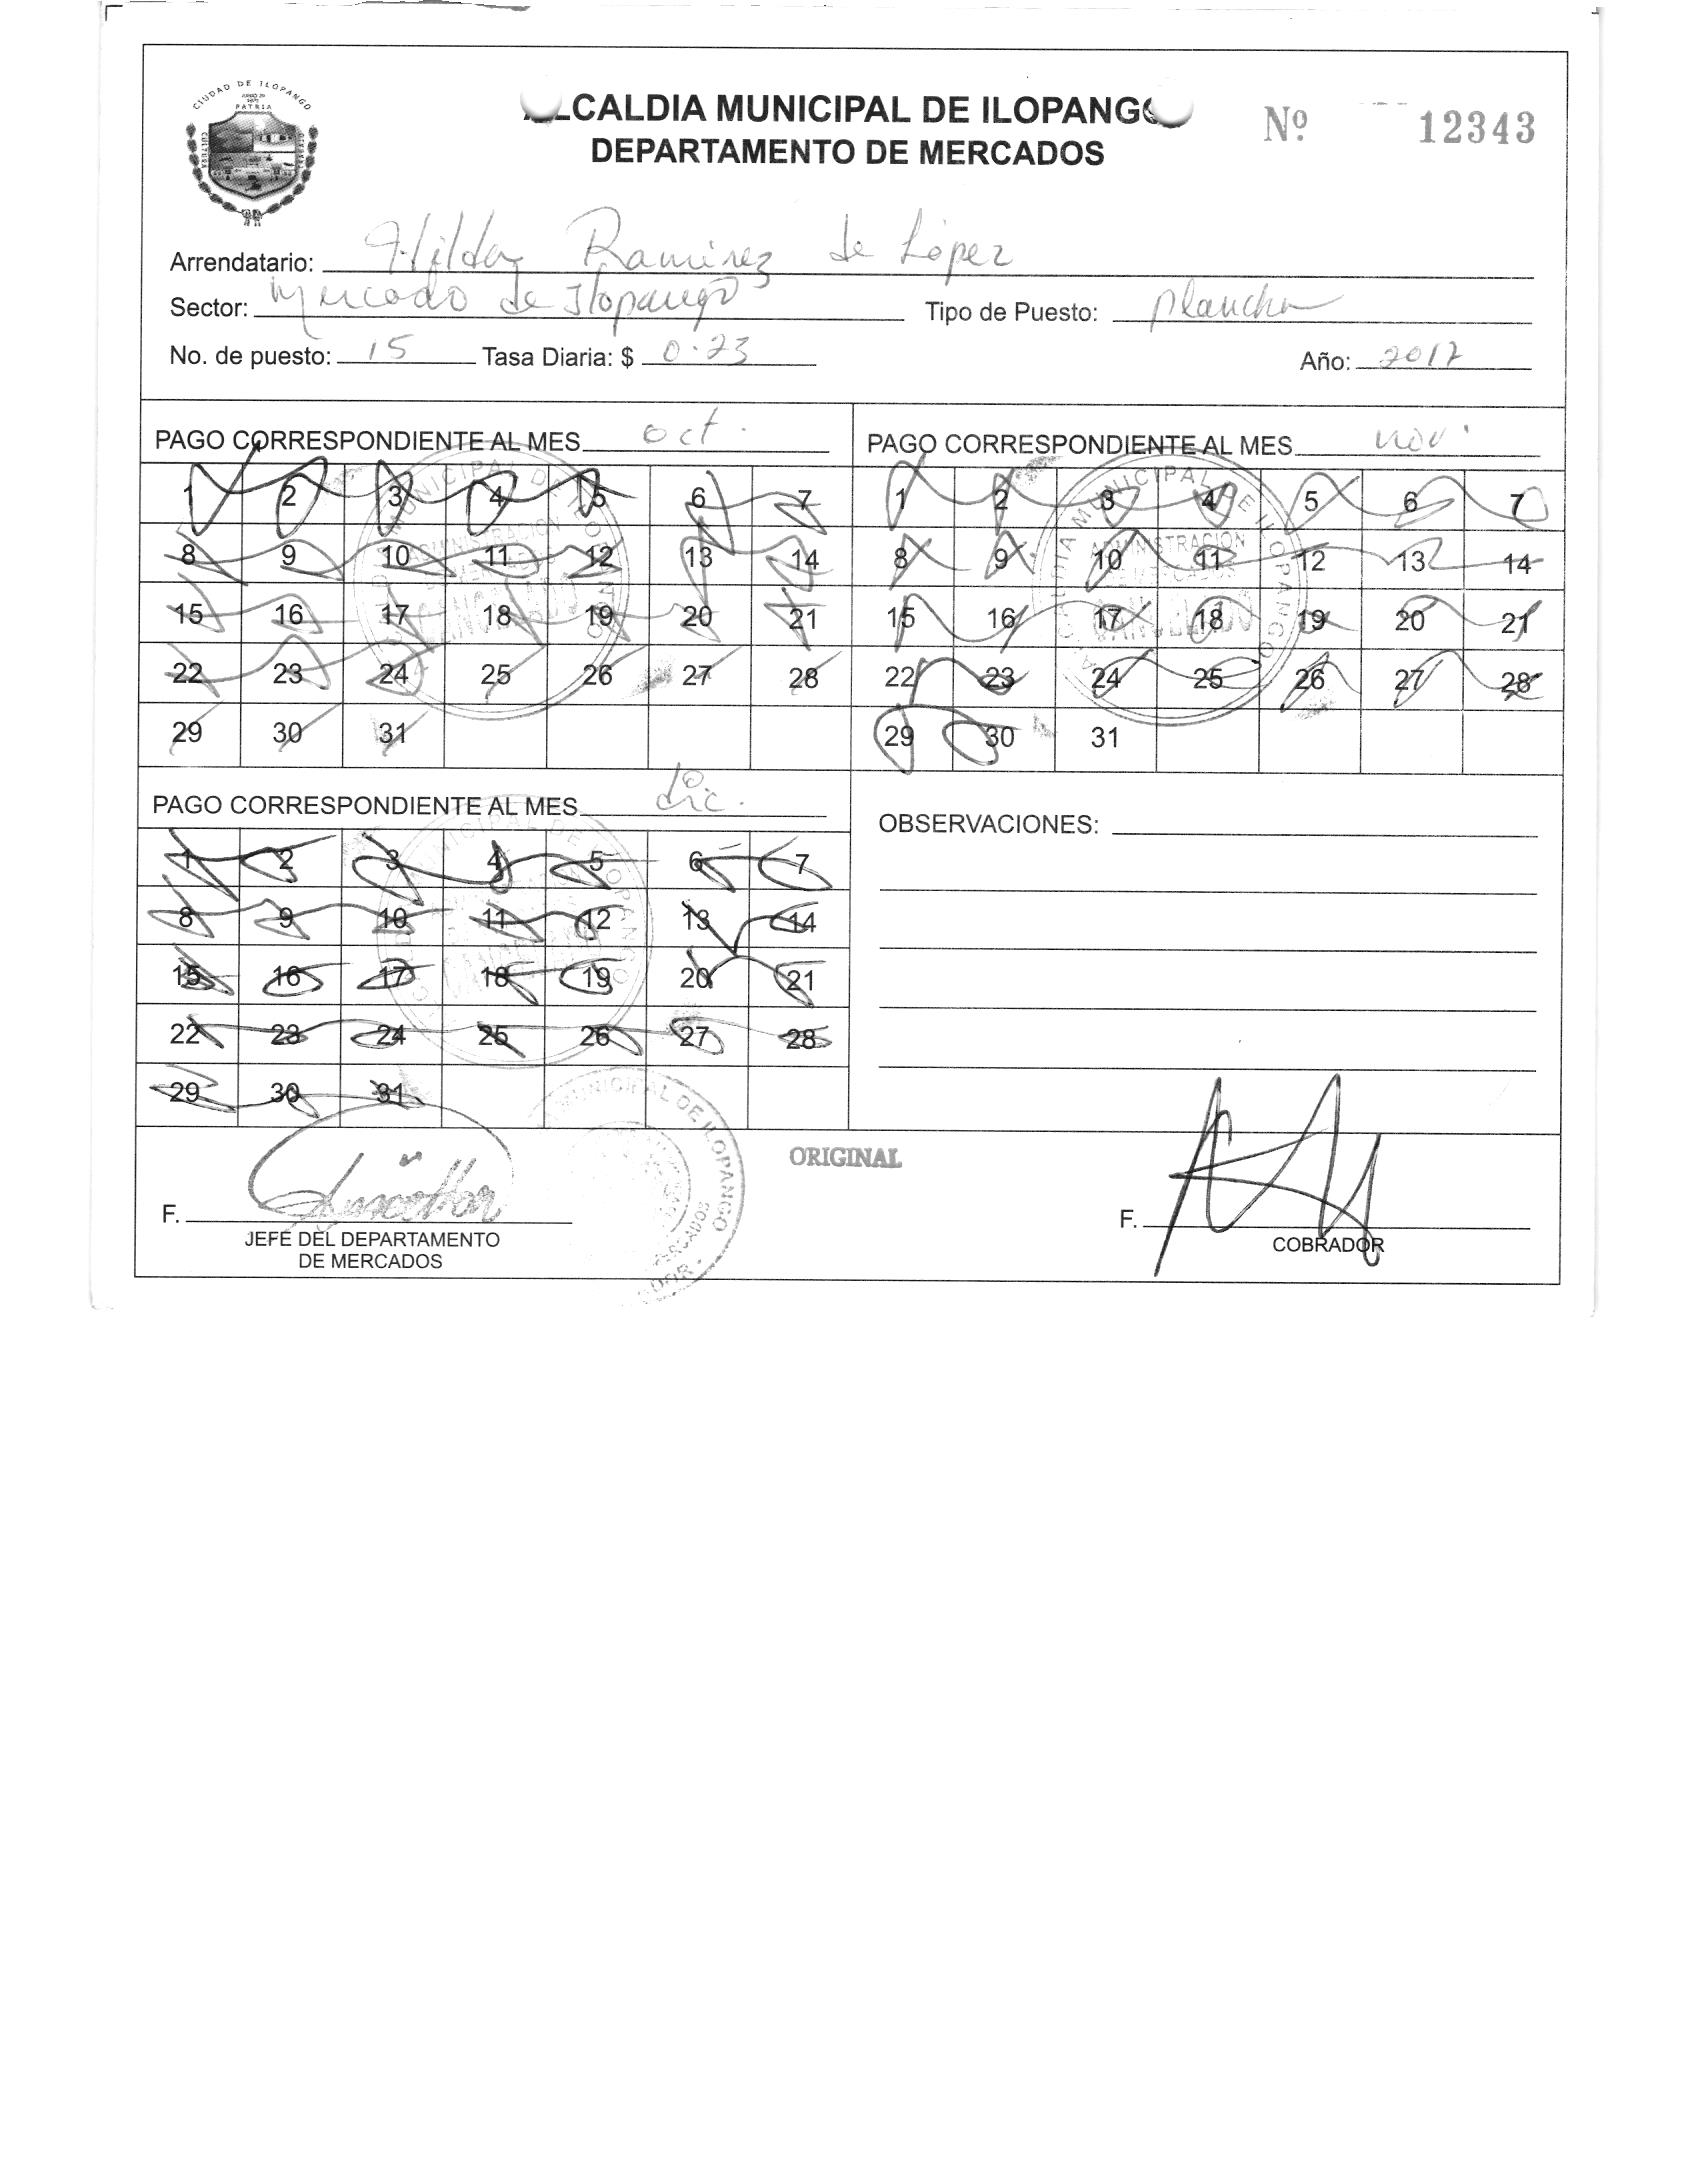 CIUDAD DE ILOPANGO
PATRIA
CULTURA
ALCALDIA MUNICIPAL DE ILOPANGO
Nº 12343
DEPARTAMENTO DE MERCADOS
Arrendatario: Hilda Ramirez de López
Sector: Mercado de Ilopango Tipo de Puesto: plancha
No. de puesto: 15 Tasa Diaria: $ 0.23 Año: 2017
PAGO CORRESPONDIENTE AL MES oct.
1 2 3 4 5 6 7
8 9 10 11 12 13 14
15 16 17 18 19 20 21
22 23 24 25 26 27 28
29 30 31
PAGO CORRESPONDIENTE AL MES nov.
1 2 3 4 5 6 7
8 9 10 11 12 13 14
15 16 17 18 19 20 21
22 23 24 25 26 27 28
29 30 31
PAGO CORRESPONDIENTE AL MES Dic.
1 2 3 4 5 6 7
8 9 10 11 12 13 14
15 16 17 18 19 20 21
22 23 24 25 26 27 28
29 30 31
OBSERVACIONES:
ORIGINAL
F.
JEFE DEL DEPARTAMENTO
DE MERCADOS
MUNICIPAL DE ILOPANGO
F.
COBRADOR